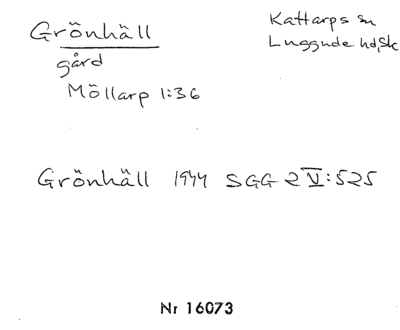 Grönhäll
Kattarps sn
Luggude hd, Sk
gård
Möllarp 1:36
Grönhäll 1944 SGG 2 V:525
Nr 16073